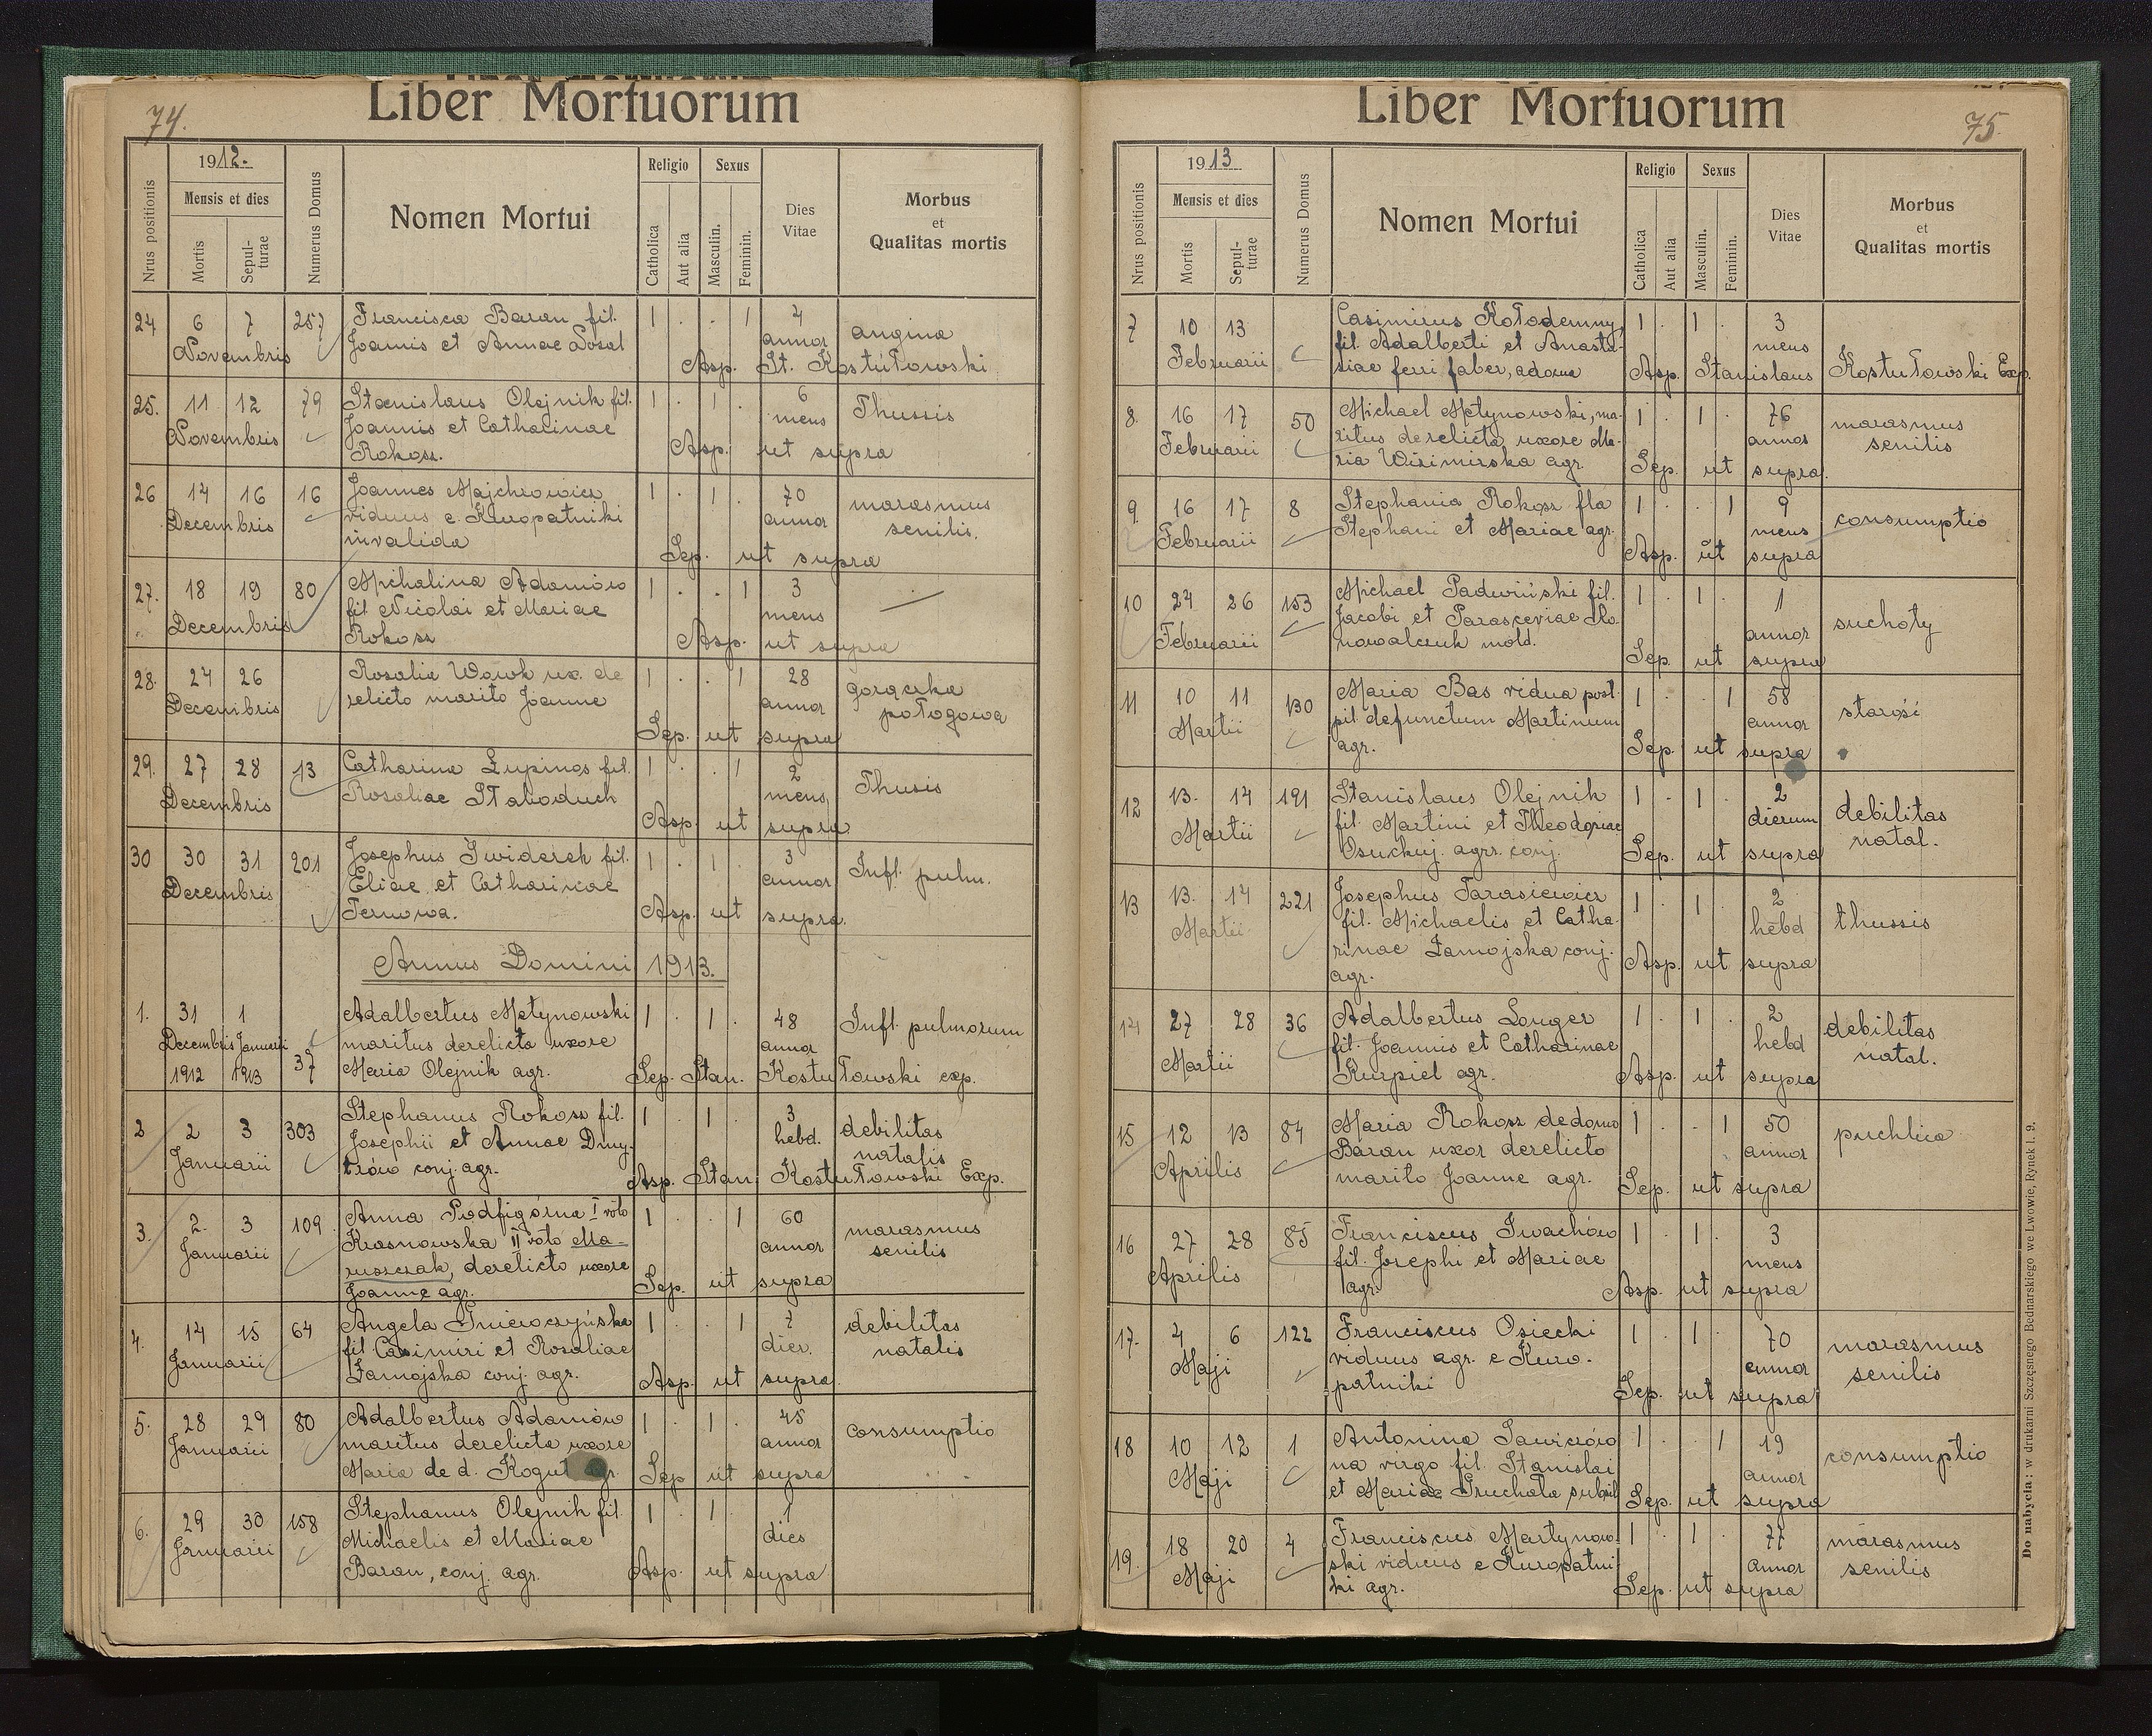 74.
Liber Mortuorum
Nrus positionis
1912.
Mensis et dies
Mortis
Sepul-
turae
Numerus Domus
Nomen Mortui
Religio
Catholica
Aut alia
Sexus
Masculin.
Feminin.
Dies
Vitae
Morbus
et
Qualitas mortis
24 6 7 257 Francisca Baran fil. 1 . . 1 4 angina
Novembris Joannis et Annae annor
Asp. St. Kostułowski
25. 11 12 79 Stanislaus Olejnik fil. 1 . 1 . 6 Thussis
Novembris Joannis et Catharinae mens
Rokosz. Asp. ut supra
26 14 16 16 Joannes Majchrowicz 1 . 1 . 70 marasmus
Decembris viduus e Kuropatniki annor senilis.
invalida Sep. ut supra
27. 18 19 80 Michalina Adamów 1 . . 1 3
Decembris fil Nicolai et Mariae mens
Rokosz Asp. ut supra
28. 24 26 Rosalia Wowk ux. de 1 . . 1 28 gorączka
Decembris relicto marito Joanne annor połogowa
Sep. ut supra
29. 27 28 13 Catharina Lupinos fil. 1 . . 1 2 Thusis
Decembris Rosaliae mens,
Asp. ut supra
30 30 31 201 Josephus Swiderek fil. 1 . 1 . 3 Infl. pulm.
Decembris Eliae et Catharinae annor
Ternowa. Asp. ut supra.
Annus Domini 1913.
1. 31 1 Adalbertus Martynowski 1 . 1 . 48 Infl. pulmorum
Decembris Januarii maritus derelicta uxore annor
1912 1913 37 Maria Olejnik agr. Sep. Stan. Kostułowski exp.
2 2 3 303 Stephanus Rokosz fil. 1 . 1 . 3 debilitas
Januarii Josephii et Annae Dmy- hebd. natalis
trów conj. agr. Asp. Stan. Kostułowski Exp.
3. 2. 3 109 Anna Podfigórna I voto 1 . . 1 60 marasmus
Januarii Krasnowska II voto Ma- annor senilis
ruszczak, derelicto uxore Sep. ut supra
Joanne agr.
4. 14 15 64 Angela 1 . . 1 7 debilitas
Januarii fil Casimiri et Rosaliae dier. natalis
Zamojska conj. agr. Asp. ut supra
5. 28 29 80 Adalbertus Adamów 1 . 1 . 45 consumptio
Januarii maritus derelicta uxore annor
Maria de d. Kogut agr. Sep ut supra
6. 29 30 158 Stephanus Olejnik fil. 1 . 1 . 1
Januarii Michaelis et Mariae dies
Baran, conj. agr. Asp. ut supra
75.
Liber Mortuorum
Nrus positionis
1913
Mensis et dies
Mortis
Sepul-
turae
Numerus Domus
Nomen Mortui
Religio
Catholica
Aut alia
Sexus
Masculin.
Feminin.
Dies
Vitae
Morbus
et
Qualitas mortis
7 10 13 Casimirus Kołodenny, 1 . 1 . 3
Februarii fil. Adalberti et Anasta- mens
siae ferri faber, Asp. Stanislaus Kostułowski Exp.
8. 16 17 50 Michael Martynowski, ma- 1 . 1 . 76 marasmus
Februarii ritus derelicta uxore Ma- annor senilis
ria agr. Sep. ut supra.
9 16 17 8 Stephania Rokosz fla 1 . . 1 9 consumptio
Februarii Stephani et Mariae agr. mens
Asp. ut supra
10 24 26 153 Michael Padwiński fil. 1 . 1 . 1 suchoty
Februarii Jacobi et Parasceviae Ro- annor
nowalczuk mold. Sep. ut supra
11 10 11 130 Maria Bas vidua post 1 . . 1 58 starość
Martii pit. defunctum Martinum annor
agr. Sep. ut supra
12 13. 14 191 Stanislaus Olejnik 1 . 1 . 2 debilitas
Martii fil. Martini et Theodoriae dierum natal.
agr. conj. Sep. ut supra
13 13. 14 221 Josephus Tarasiewicz 1 . 1 . 2 thussis
Martii fil. Michaelis et Catha- hebd
rinae Zamojska conj. Asp. ut supra
agr.
14 27 28 36 Adalbertus Longer 1 . 1 . 2 debilitas
Martii fil. Joannis et Catharinae hebd natal.
Kurpiel agr. Asp. ut supra
15 12 13 84 Maria Rokosz de domo 1 . . 1 50 puchlina
Aprilis Baran uxor derelicto annor
marito Joanne agr. Sep. ut supra
16 27 28 85 Franciscus Iwachów 1 . 1 . 3
Aprilis fil. Josephi et Mariae mens
agr. Asp. ut supra
17. 4 6 122 Franciscus Osiecki 1 . 1 . 70 marasmus
Maji viduus agr. e Kuro- annor senilis
patniki Sep. ut supra
18 10 12 1 Antonina Sawiczów 1 . . 1 19 consumptio
Maji na virgo fil. Stanislai annor
et Mariae Gruchała Sep. ut supra
19. 18 20 4 Franciscus Martynow- 1 . 1 . 77 marasmus
Maji ski viduus e Kuropatni annor senilis
ki agr. Sep. ut supra
Do nabycia: w drukarni Szczęsnego Bednarskiego we Lwowie, Rynek l. 9.